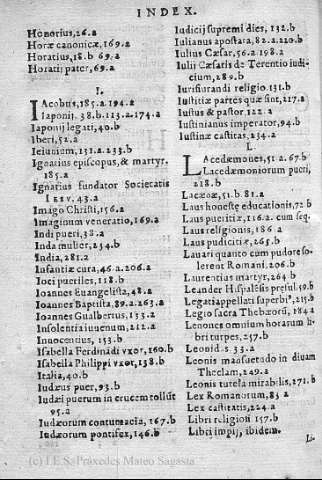 INDEX.
Honorius, 26.a
Horæ canonicæ, 169.a
Horatius, 18.b 69.a
Horatii pater, 69.a
I.
IAcobus, 185.a. 194.a
Iaponij. 38.b. 113.a. 174.a
Iaponij legati, 40.b
Iberi, 52.a
Ieiunium, 131.a. 233.b
Ignatius episcopus, & martyr.
185.a
Ignatius fundator Societatis
IESV, 43.a
Imago Christi, 156.a
Imaginum veneratio, 169.a
Indi pueri, 38.a
Inda mulier, 234.b
India, 281.a
Infantiæ cura, 46.a. 206.b
Ioci pueriles, 118.b
Ioannes Euangelista, 48.a
Ioannes Baptista, 89.a. 263.a
Ioannes Gualbertus, 133.a
Insolentia iuuenum, 212.a
Innocentius, 153.b
Isabella Ferdinãdi vxor, 160.b
Isabella Philippi vxor, 138.b
Italia, 40.b
Iudæus puer, 93.b
Iudæi puerum in crucem tollũt
95.a
Iudæorum contumacia, 167.b
Iudæorum pontifex, 146.b
Iudicij supremi dies, 132.b
Iulianus apostata, 82.a. 220.b
Iulius Cæsar, 56.a. 198.a
Iulii Cæsaris de Terentio iudi-
cium, 289.b
Iurisiurandi religio. 131.b
Iustitiæ partes quæ sint, 217.a
Iustus & pastor, 122.a
Iustinianus imperator, 94.b
Iustinæ castitas, 234.a
L.
LAcedæmones, 51.a. 67.b
Lacedæmoniorum pueri,
218.b
Lacæna, 51.b. 81.a
Laus honestę educationis, 72.b
Laus pueritiæ, 116.a. cum seq.
Laus religionis, 186.a
Laus pudicitiæ, 265.b
Lauari quanto cum pudore so-
lerent Romani. 206.b
Laurentius martyr, 264.b
Leander Hispalẽsis præsul. 59.b
Legati appellati superbi, 215.b
Legio sacra Thebæorũ, 184.a
Lenones omnium horarum li-
bri turpes, 257.b
Leonidæ 33.a
Leonis mansuetudo in diuam
Theclam, 249.a
Leonis tutela mirabilis, 271.b
Lex Romanorum, 83.a
Lex castitatis, 224.a
Libri religiosi 157.b
Libri impij, ibidem.
Li-
(c) I.E.S. Práxedes Mateo Sagasta